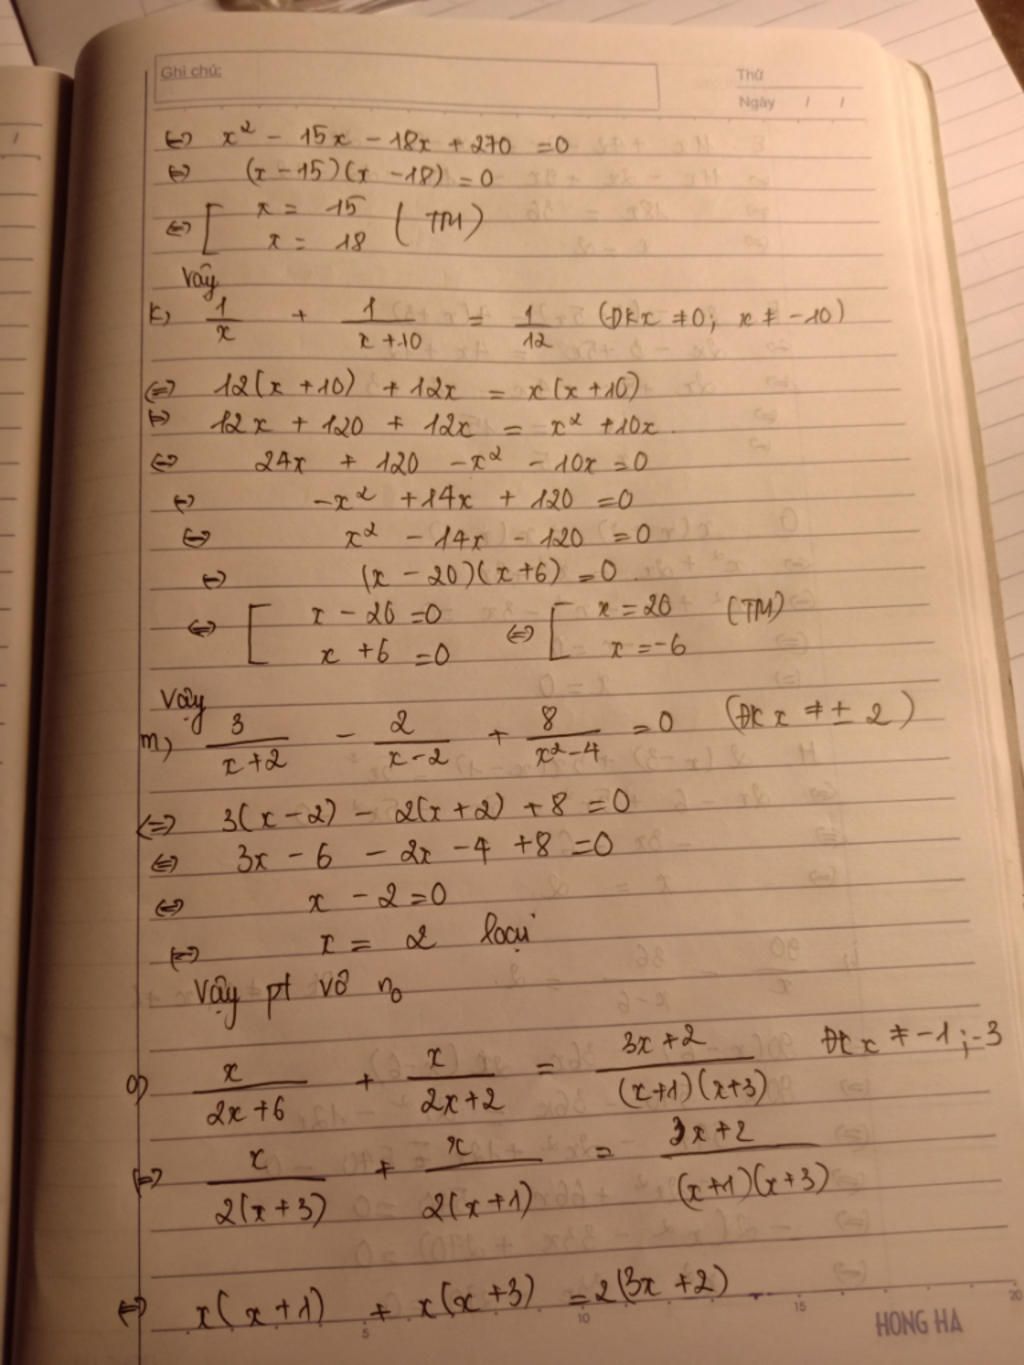 Ghi chú:
Thứ
Ngày / /
⇔ x² - 15x - 18x + 270 = 0
⇔ (x - 15)(x - 18) = 0
⇔ [ x = 15
x = 18 (TM)
Vậy
k, 1/x + 1/(x+10) = 1/12 (ĐK x ≠ 0; x ≠ -10)
⇔ 12(x + 10) + 12x = x(x + 10)
⇔ 12x + 120 + 12x = x² + 10x
⇔ 24x + 120 - x² - 10x = 0
⇔ -x² + 14x + 120 = 0
⇔ x² - 14x - 120 = 0
⇔ (x - 20)(x + 6) = 0
⇔ [ x - 20 = 0 ⇔ [ x = 20 (TM)
x + 6 = 0 x = -6
Vậy
m, 3/(x+2) - 2/(x-2) + 8/(x²-4) = 0 (ĐK x ≠ ± 2)
⇔ 3(x - 2) - 2(x + 2) + 8 = 0
⇔ 3x - 6 - 2x - 4 + 8 = 0
⇔ x - 2 = 0
⇔ x = 2 loại
Vậy pt vô n₀
o, x/(2x+6) + x/(2x+2) = (3x+2)/((x+1)(x+3)) ĐK x ≠ -1; -3
⇔ x/(2(x+3)) + x/(2(x+1)) = (3x+2)/((x+1)(x+3))
⇔ x(x+1) + x(x+3) = 2(3x+2)
5 10 15 20
HONG HA